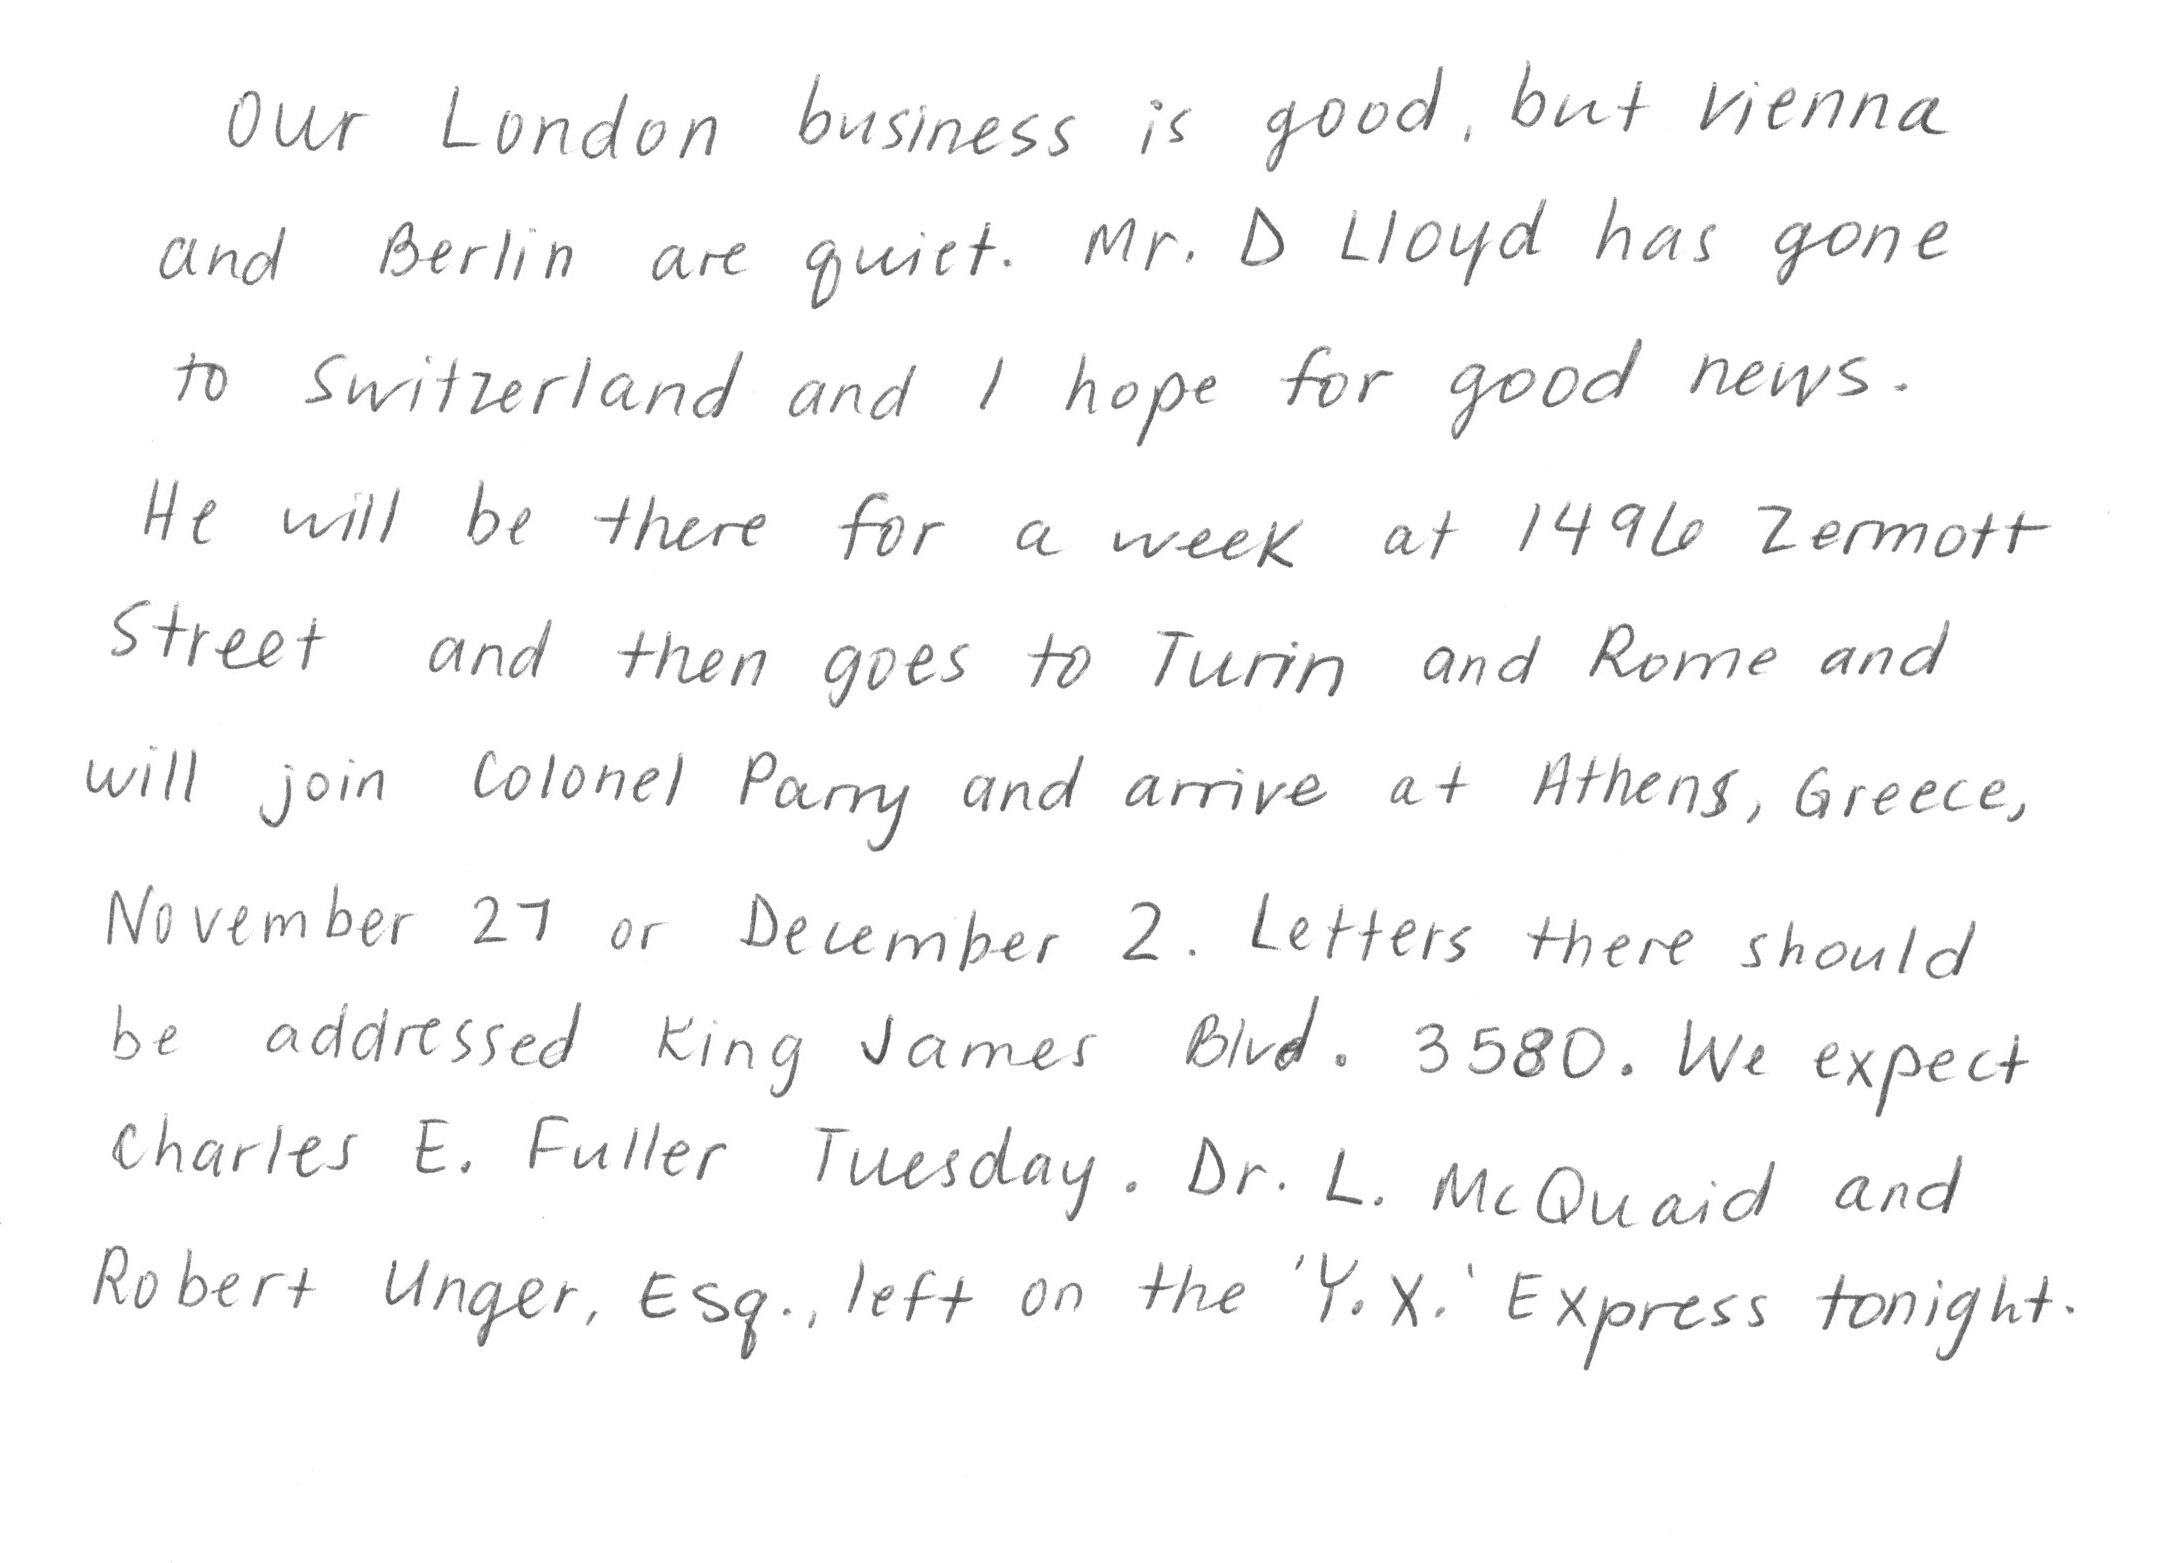 Our London business is good, but Vienna
and Berlin are quiet. Mr. D Lloyd has gone
to Switzerland and I hope for good news.
He will be there for a week at 1496 Zermott
Street and then goes to Turin and Rome and
will join Colonel Parry and arrive at Athens, Greece,
November 27 or December 2. Letters there should
be addressed King James Blvd. 3580. We expect
Charles E. Fuller Tuesday. Dr. L. McQuaid and
Robert Unger, Esq., left on the 'Y.X.' Express tonight.